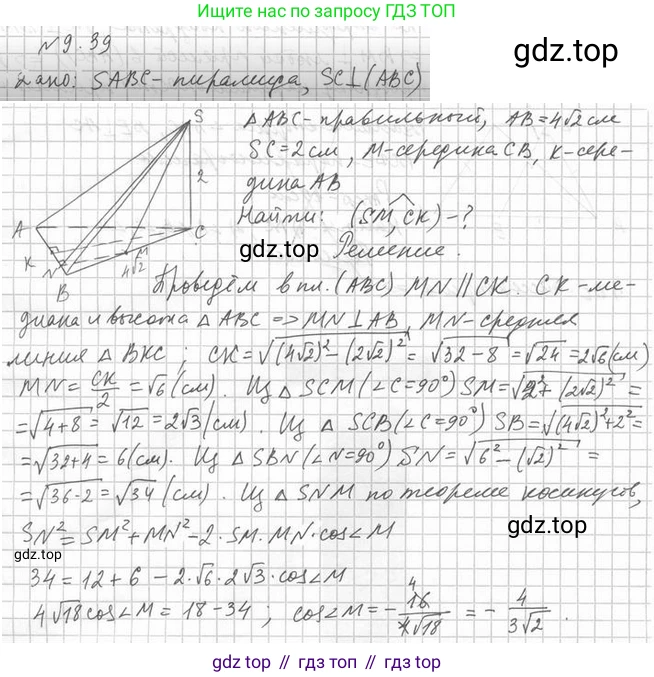 Ищите нас по запросу ГДЗ ТОП
№9.39
gdz.top
Дано: SABC - пирамида, SC⊥(ABC)
ΔABC - правильный, AB=4√2 см
SC=2см, M-середина CB, K-сере-
дина AB
Найти: (SM,^CK) - ?
gdz.top
Решение.
S
2
A
C
K
N
M
B
4√2
Проведём в пл. (ABC) MN || CK. CK-ме-
диана и высота ΔABC => MN⊥AB, MN-средняя
линия ΔBKC; CK=√((4√2)²-(2√2)²)=√(32-8)=√24=2√6(см)
MN=CK/2=√6(см). Из ΔSCM(∠C=90°) SM=√(2²+(2√2)²)=
=√(4+8)=√12=2√3(см). Из ΔSCB(∠C=90°) SB=√((4√2)²+2²)=
=√(32+4)=6(см). Из ΔSBN(∠N=90°) SN=√(6²-(√2)²)=
=√(36-2)=√34(см). Из ΔSNM по теореме косинусов,
SN²=SM²+MN²-2·SM·MN·cos∠M
gdz.top
34=12+6-2·√6·2√3·cos∠M
4√18cos∠M=18-34; cos∠M=-16/4√18 4 =-4/3√2.
gdz.top // гдз.топ // gdz.top // гдз.топ // gdz.top